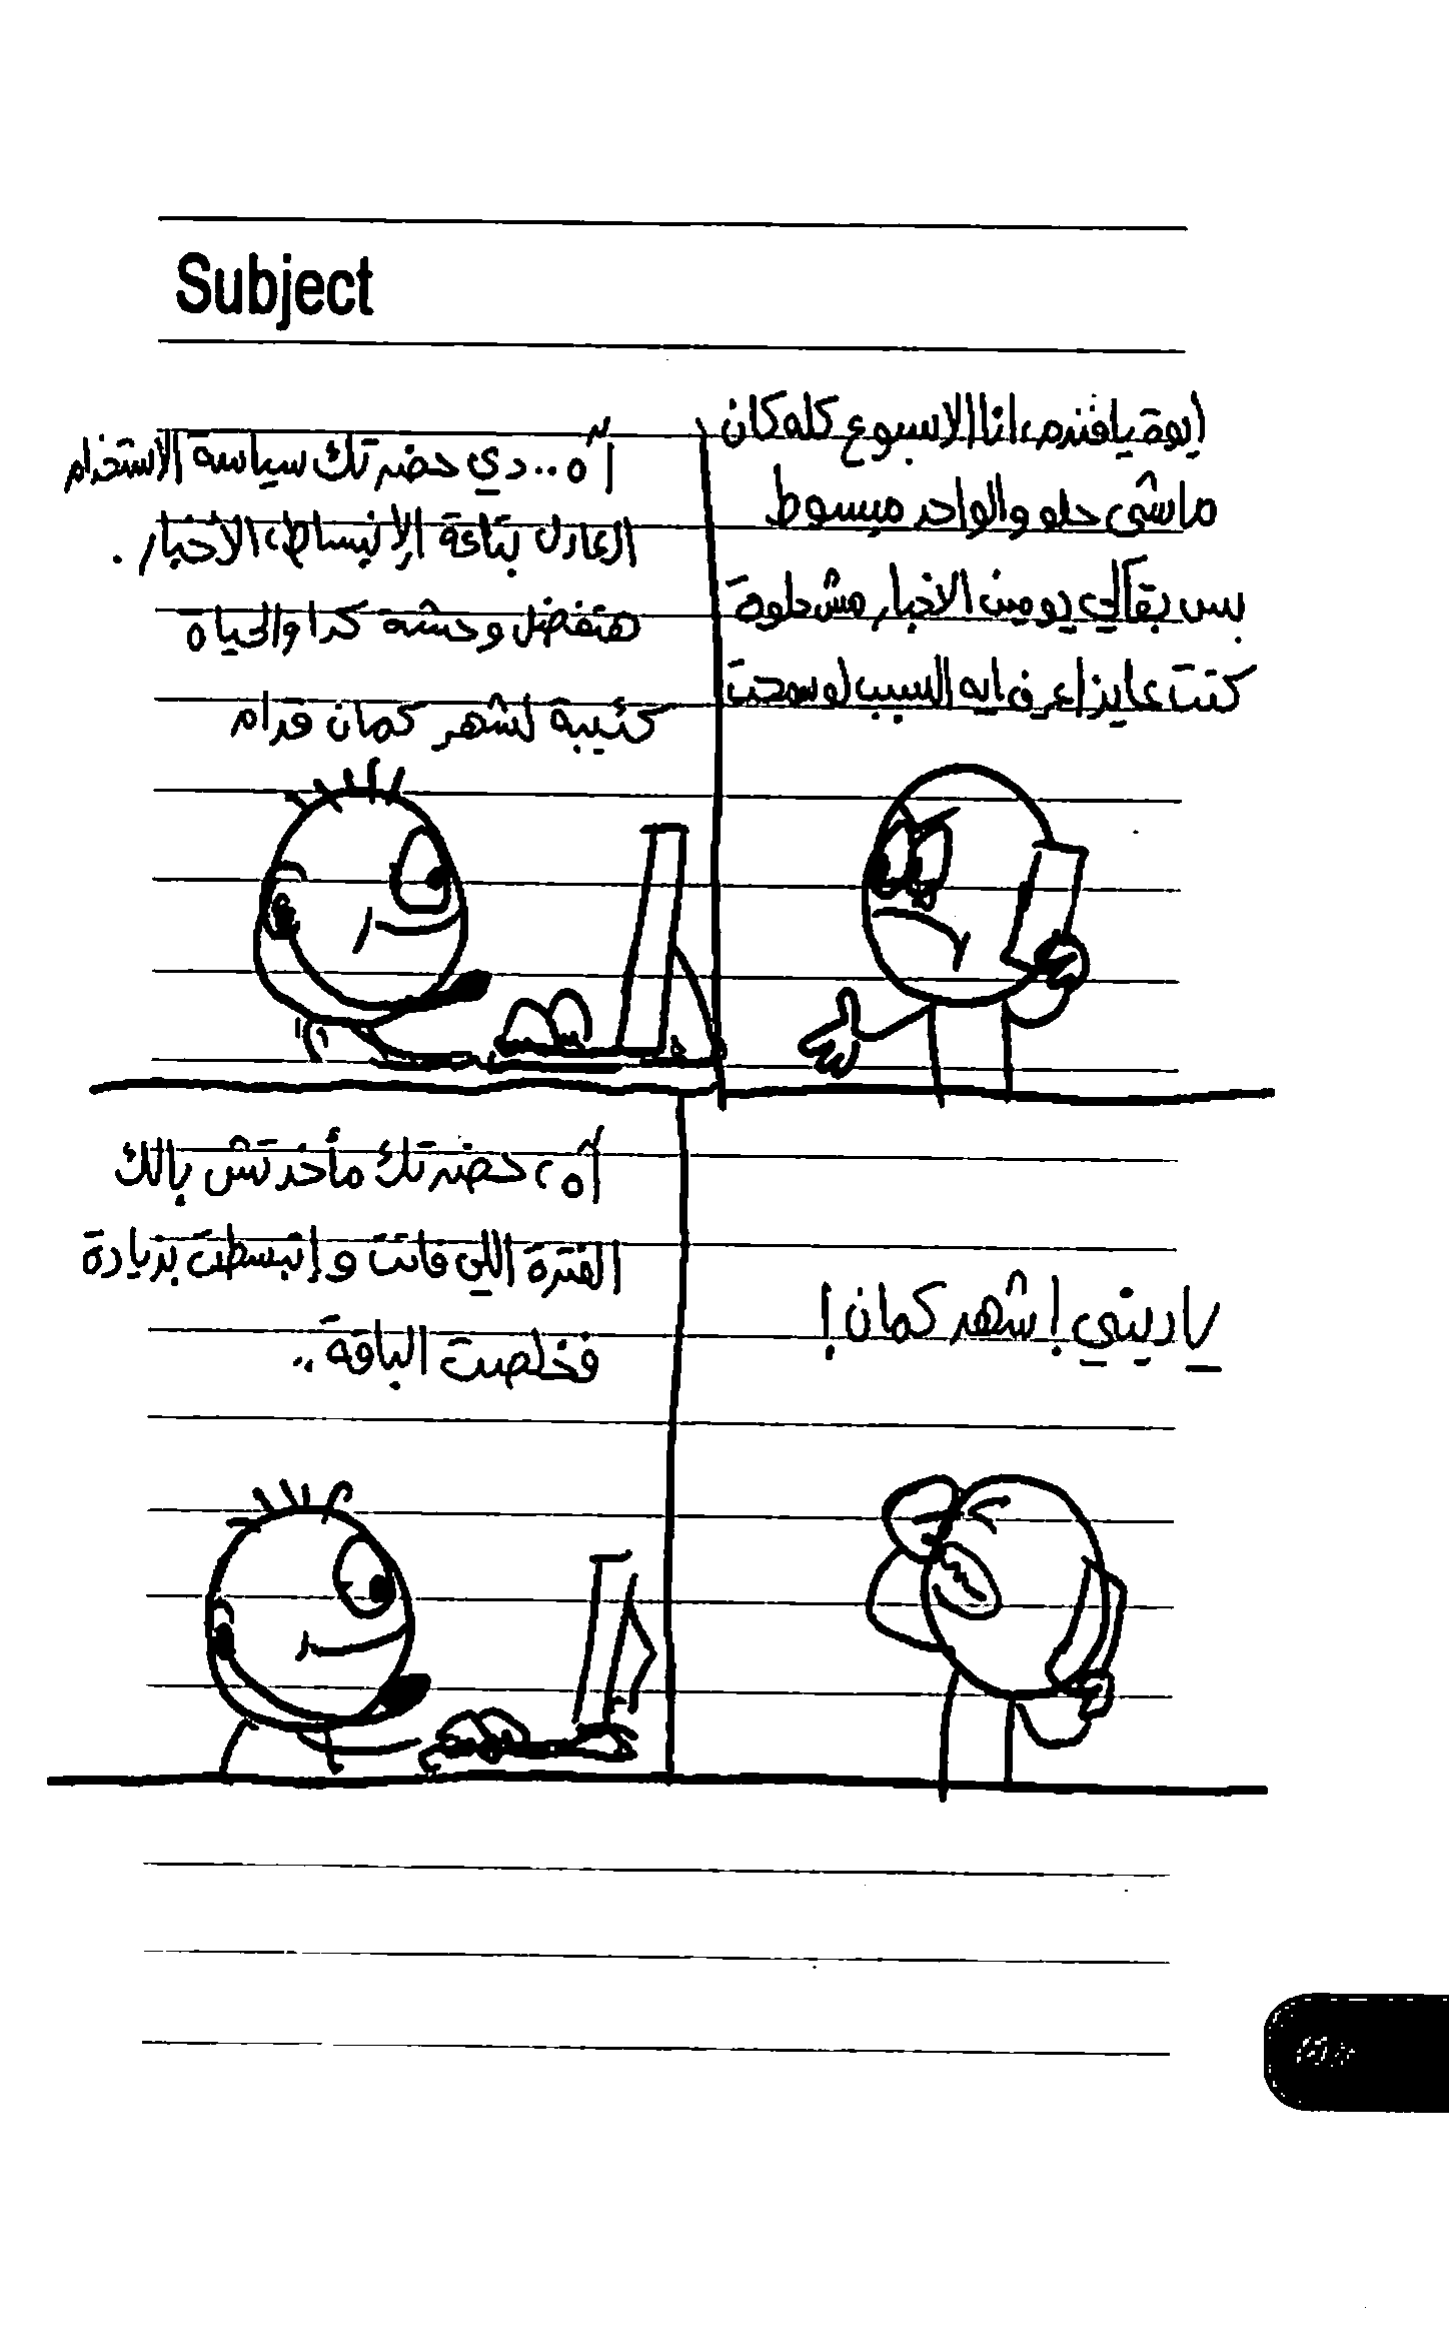 Subject
ايوة يا فندم، انا الاسبوع كله كان
ماشي حلو والواحد مبسوط
بس بقالي يومين الاخبار مش حلوة
كنت عايز اعرف ايه السبب لو سمحت
آه.. دي حضرتك سياسة الاستخدام
العادل بتاعة الإنبساط، الأخبار.
هتفضل وحشة كدا والحياة
كئيبة لشهر كمان قدام
ياديني! شهر كمان!
آه، حضرتك مأخدتش بالك
الفترة اللي فاتت وإنبسطت بزيادة
فخلصت الباقة..